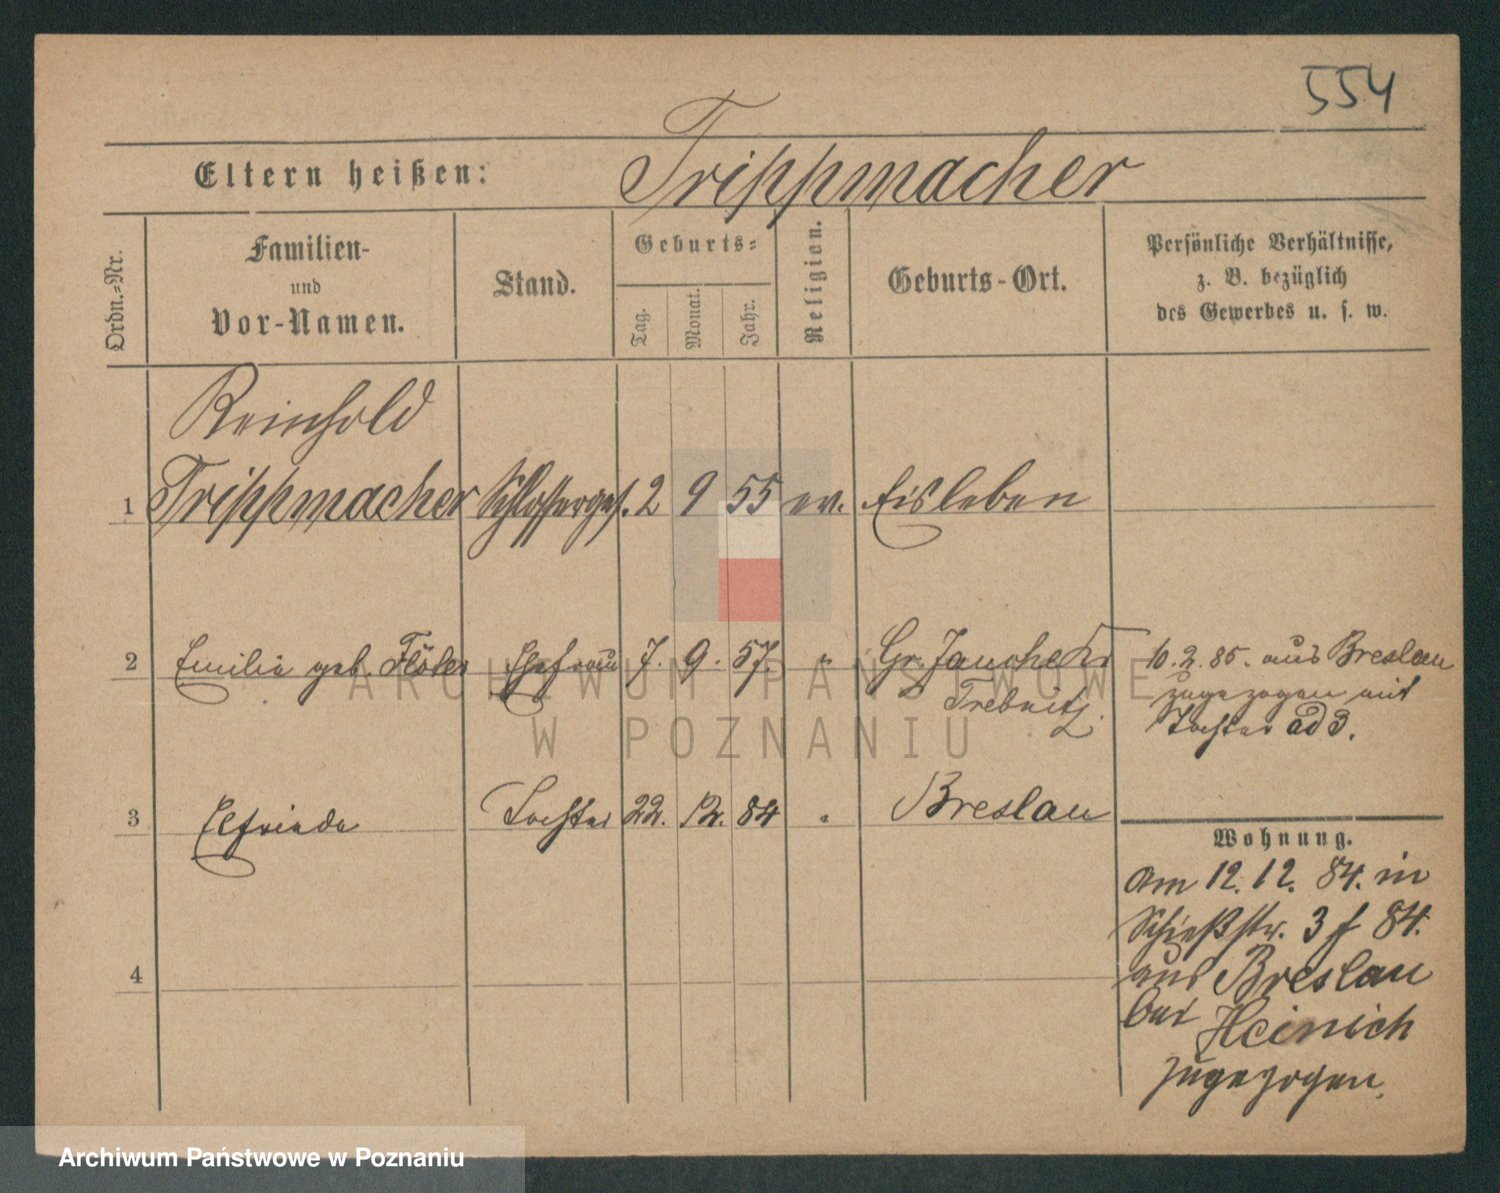 554
Eltern heißen: Trippmacher
Ordn.-Nr.
Familien-
und
Vor-Namen.
Stand.
Geburts-
Tag.
Monat.
Jahr.
Religion.
Geburts-Ort.
Persönliche Verhältnisse,
z. B. bezüglich
des Gewerbes u. s. w.
Reinhold
1 Trippmacher Schlosserges. 2 9 55 ev. Eisleben
2 Emilie geb. Flöter Ehefrau 7. 9. 57. " Gr. Jauche Kr
Trebnitz.
10. 2. 85. aus Breslau
zugezogen mit
Tochter ad 3.
3 Elfriede Tochter 22. 12. 84 " Breslau
Wohnung.
Am 12. 12. 84. in
Schießstr. 3 f 84.
aus Breslau
bei Heinich
zugezogen.
4
ARCHIWUM PAŃSTWOWE
W POZNANIU
Archiwum Państwowe w Poznaniu